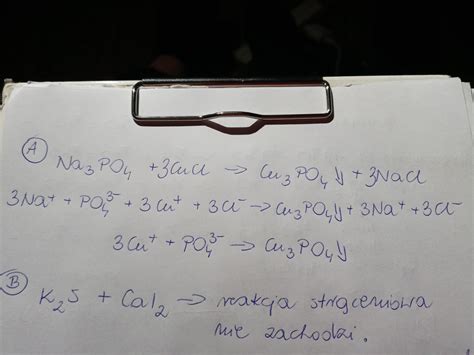 A
Na₃PO₄ + 3CuCl → Cu₃PO₄↓ + 3NaCl
3Na⁺ + PO₄³⁻ + 3Cu⁺ + 3Cl⁻ → Cu₃PO₄↓ + 3Na⁺ + 3Cl⁻
3Cu⁺ + PO₄³⁻ → Cu₃PO₄↓
B
K₂S + CaI₂ → reakcja strąceniowa
nie zachodzi.